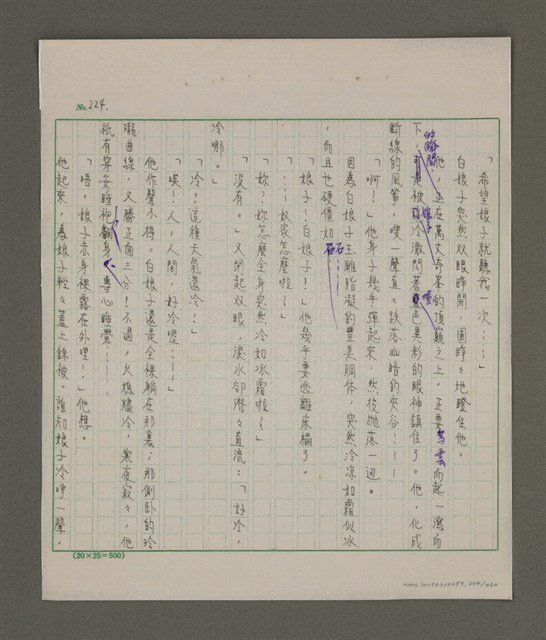 No. 224.
「希望娘子就聽我一次…」
白娘子突然双眼睜開，圓睜々地瞪住他。
他，正在萬丈奇峯的頂巔之上，正要駕雲而起一瀉而
下的瞬間，被娘子冷澈閃著藍色異彩的眼神鎮住了。他，化成
斷線的風箏，嗖一聲直々跌落幽暗的夾谷！——
「啊！」他身子幾乎彈起來，然後拋落一边。
因為白娘子玉雕脂凝的豐美胴体，突然冷凉如霜似冰
，而且也硬僵如石……
「娘子！白娘子！」他幾乎要逃離床榻了。
「…奴家怎麼啦？」
「妳？妳怎麼全身突然冷如冰霜啦？」
「沒有。」又閉起双眼，淚水卻潸々直流：「好冷，
冷哪。」
「冷？這種天氣還冷？」
「唉！人，人間，好冷噢…」
他作聲不得。白娘子還是全裸躺在那裏；那側卧的玲
瓏曲線，又勝正面三分！不過，火熄爐冷，寒夜寂々，他
祇有穿妥睡袍翻身，專心睡覺……
「唔，娘子赤身裸露在外哩！」他想。
他起來，為娘子輕々蓋上錦被。誰知娘子冷哼一聲，
(20×25=500)